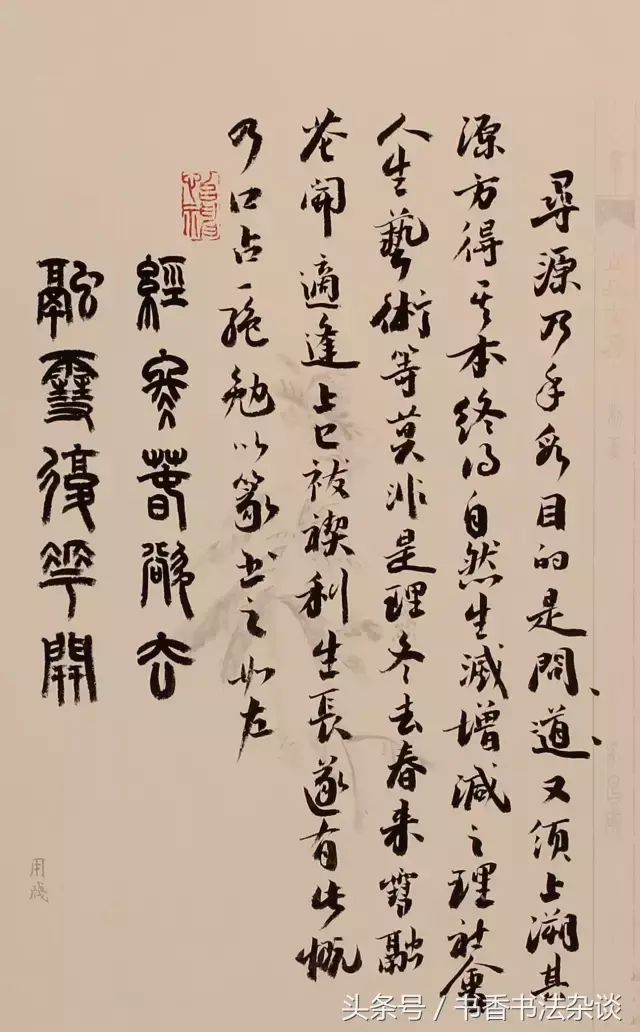 尋源乃手段目的是問道又須上溯其
源方得其本終得自然生滅增減之理社會
人生藝術等莫非是理冬去春来雪融
花開適逢上巳祓禊利生長遂有此慨
乃口占一絶勉以篆书之如左
經寒春欲去
融雪復華開
用牋
头条号／书香书法杂谈